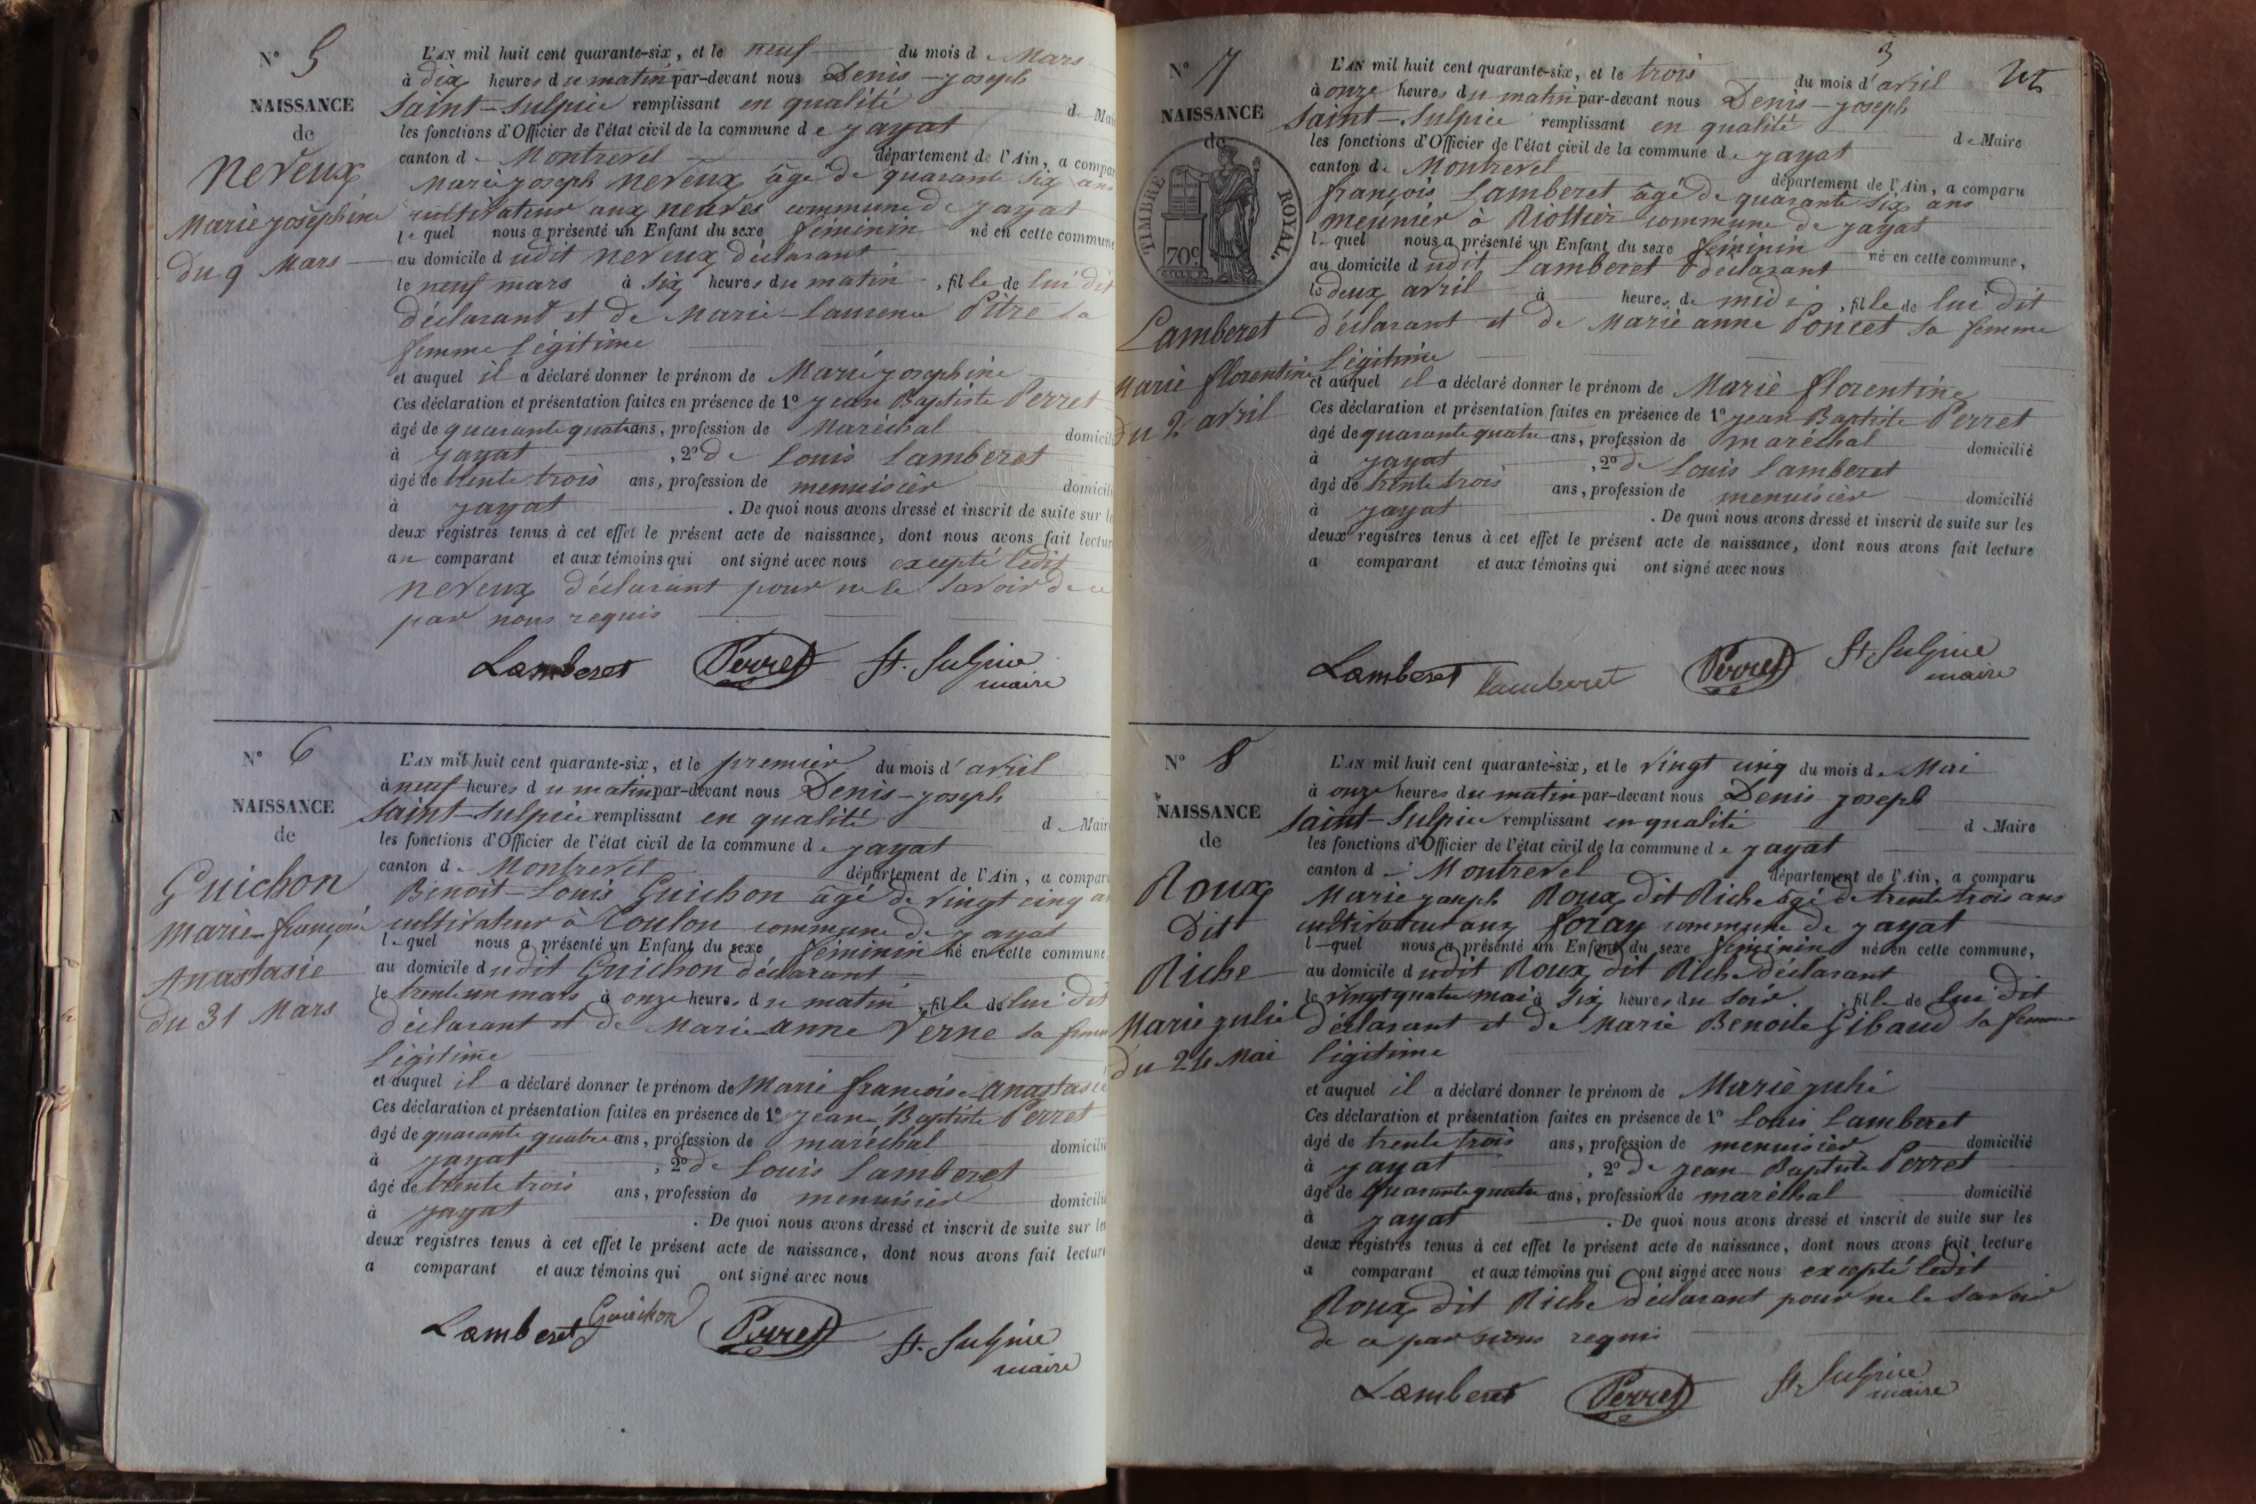 N° 5
NAISSANCE
de
Nereux
Marie Josephine
du 9 Mars
L'AN mil huit cent quarante-six, et le neuf du mois d Mars
à dix heures du matin par-devant nous Denis-joseph
Saint-Sulpice remplissant en qualité d Mai
les fonctions d'Officier de l'état civil de la commune de jayat
canton d Montrevel département de l'Ain, a compar
Marie joseph Nereux âgé de quarante six ans
cultivateur aux neures commune de jayat
lequel nous a présenté un Enfant du sexe féminin né en cette commune
au domicile dudit nereux déclarant
le neuf mars à six heures du matin, fille de lui dit
déclarant et de Marie-Laurence Pitre sa
femme légitime
et auquel il a déclaré donner le prénom de Marie josephine
Ces déclaration et présentation faites en présence de 1° jean Baptiste Perret
âgé de quarante quatre ans, profession de Maréchal domicili
à jayat, 2° de Louis Lamberet
âgé de trente trois ans, profession de menuisier domicili
à jayat. De quoi nous avons dressé et inscrit de suite sur le
deux registres tenus à cet effet le présent acte de naissance, dont nous avons fait lectur
au comparant et aux témoins qui ont signé avec nous excepté ledit
nereux déclarant pour ne le savoir de ce
par nous requis
Lamberet Perret St. Sulpice
maire
N° 6
NAISSANCE
de
Guichon
Marie françoise
Anastasie
du 31 Mars
L'AN mil huit cent quarante-six, et le premier du mois d'avril
à neuf heures du matin par-devant nous Denis-joseph
Saint-Sulpice remplissant en qualité d Mair
les fonctions d'Officier de l'état civil de la commune de jayat
canton d Montrevel département de l'Ain, a compar
Benoit-Louis Guichon âgé de vingt cinq a
cultivateur à Toulon commune de jayat
lequel nous a présenté un Enfant du sexe féminin né en cette commune
au domicile dudit Guichon déclarant
le trente un mars à onze heures du matin, fille de lui dit
déclarant et de Marie anne Verne sa femme
légitime
et auquel il a déclaré donner le prénom de Marie françoise anastasie
Ces déclaration et présentation faites en présence de 1° jean Baptiste Perret
âgé de quarante quatre ans, profession de maréchal domicilié
à jayat, 2° de Louis Lamberet
âgé de trente trois ans, profession de menuisier domicilié
à jayat. De quoi nous avons dressé et inscrit de suite sur les
deux registres tenus à cet effet le présent acte de naissance, dont nous avons fait lecture
a comparant et aux témoins qui ont signé avec nous
Lamberet Guichon Perret St. Sulpice
maire
3
N° 7
NAISSANCE
de
TIMBRE ROYAL.
70c
Lamberet
Marie florentine
du 2 avril
L'AN mil huit cent quarante-six, et le trois du mois d'avril
à onze heures du matin par-devant nous Denis-joseph
Saint-Sulpice remplissant en qualité de Maire
les fonctions d'Officier de l'état civil de la commune de jayat
canton de Montrevel département de l'Ain, a comparu
françois Lamberet âgé de quarante six ans
meunier à commune de jayat
lequel nous a présenté un Enfant du sexe féminin né en cette commune,
au domicile dudit Lamberet déclarant
le deux avril à heures de midi, fille de lui dit
déclarant et de Marie anne Poncet sa femme
légitime
et auquel il a déclaré donner le prénom de Marie florentine
Ces déclaration et présentation faites en présence de 1° jean Baptiste Perret
âgé de quarante quatre ans, profession de maréchal domicilié
à jayat, 2° de Louis Lamberet
âgé de trente trois ans, profession de menuisier domicilié
à jayat. De quoi nous avons dressé et inscrit de suite sur les
deux registres tenus à cet effet le présent acte de naissance, dont nous avons fait lecture
a comparant et aux témoins qui ont signé avec nous
Lamberet Lamberet Perret St. Sulpice
maire
N° 8
NAISSANCE
de
Roux
Dit
Riche
Marie julie
du 24 Mai
L'AN mil huit cent quarante-six, et le vingt cinq du mois de Mai
à onze heures du matin par-devant nous Denis joseph
Saint-Sulpice remplissant en qualité d Maire
les fonctions d'Officier de l'état civil de la commune de jayat
canton d Montrevel département de l'Ain, a comparu
Marie joseph Roux dit Riche âgé de trente trois ans
cultivateur aux foray commune de jayat
lequel nous a présenté un Enfant du sexe féminin né en cette commune,
au domicile dudit Roux dit Riche déclarant
le vingt quatre mai à six heures du soir, fille de lui dit
déclarant et de Marie Benoite Gibaud sa femme
légitime
et auquel il a déclaré donner le prénom de Marie julie
Ces déclaration et présentation faites en présence de 1° Louis Lamberet
âgé de trente trois ans, profession de menuisier domicilié
à jayat, 2° de jean-Baptiste Perret
âgé de quarante quatre ans, profession de maréchal domicilié
à jayat. De quoi nous avons dressé et inscrit de suite sur les
deux registres tenus à cet effet le présent acte de naissance, dont nous avons fait lecture
a comparant et aux témoins qui ont signé avec nous excepté ledit
Roux dit Riche déclarant pour ne le savoir
de ce par nous requis
Lamberet Perret St. Sulpice
maire